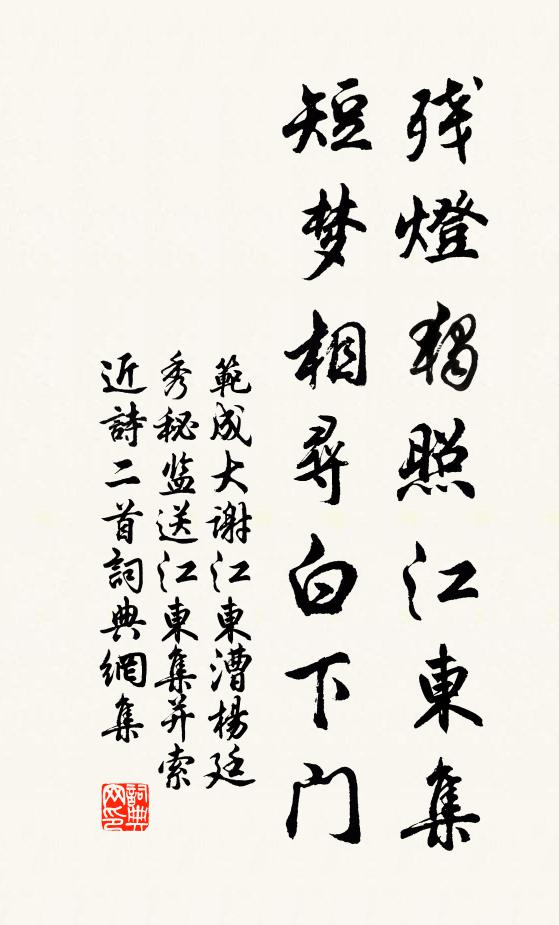 残燈獨照江東集
短梦相尋白下門
範成大謝江東漕楊廷
秀秘监送江東集并索
近詩二首詞典網集
詞典网印